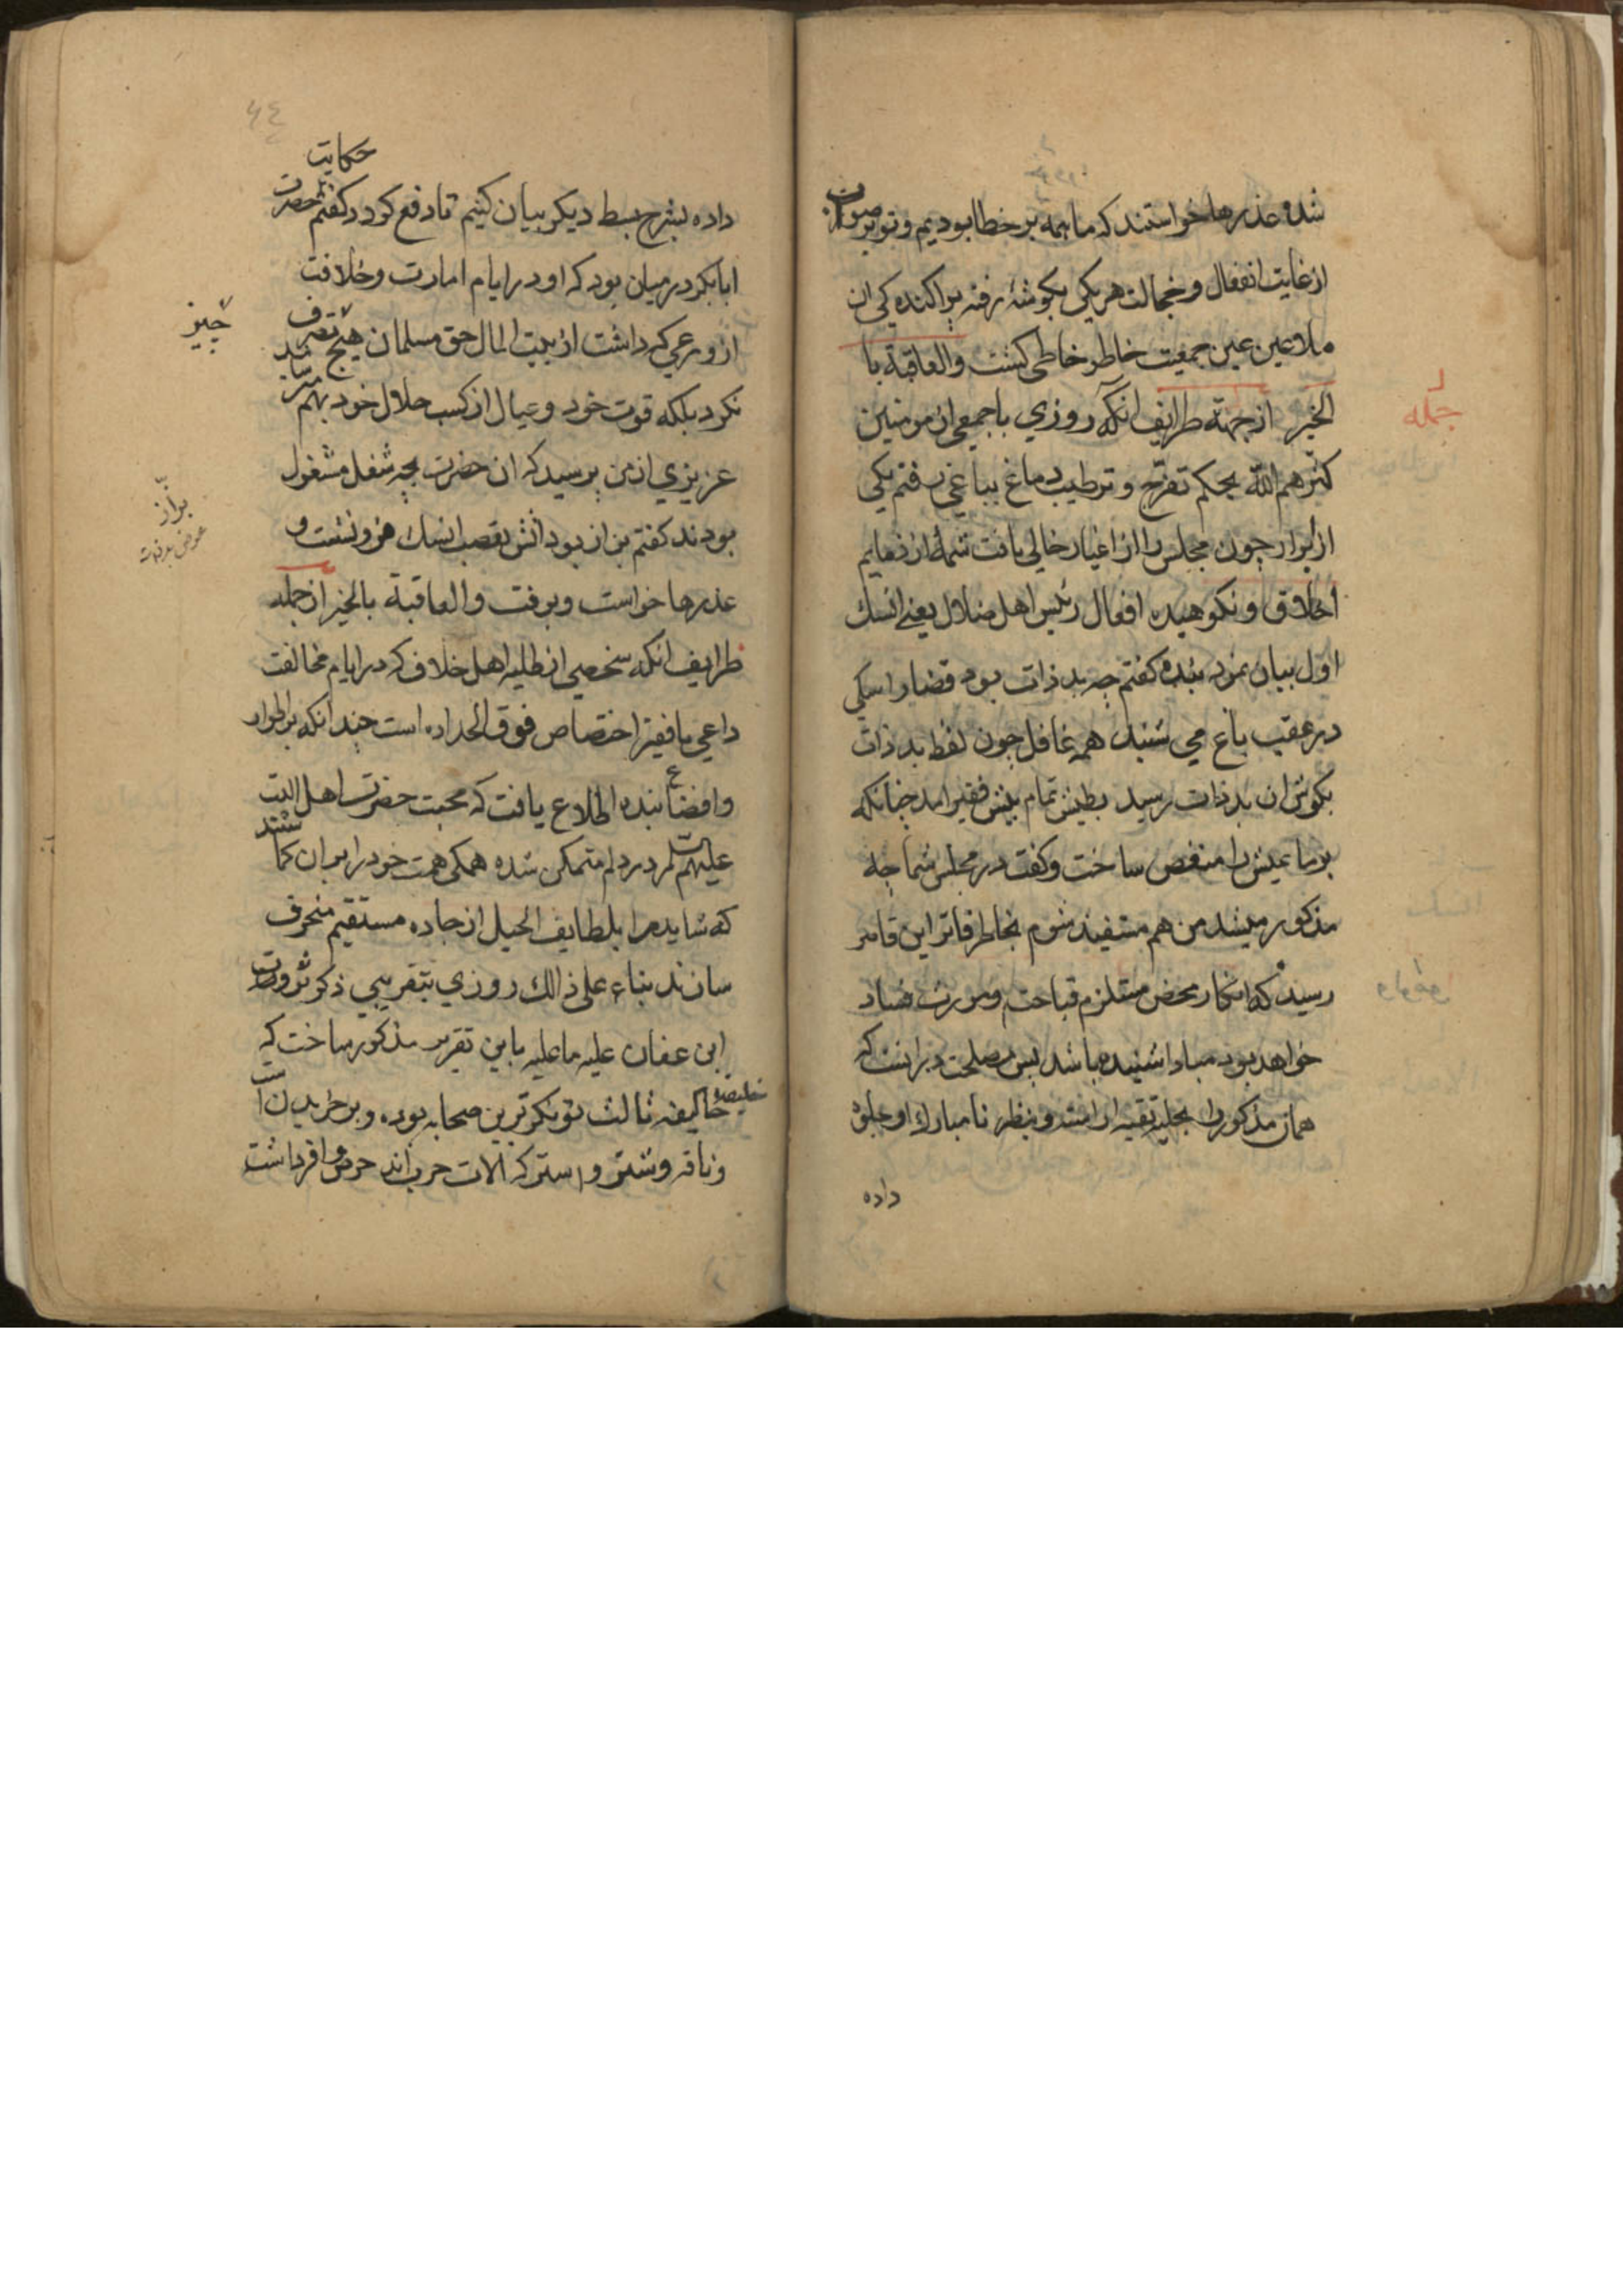 شده عذرها خواستند که ما همه بر خطا بودیم و تو بر صواب
از غایت انفعال و خجالت هر یکی بکوشهٔ رفته پراکنده کی ان
ملاعین عین جمعیت خاطر خاطی کشت والعاقبة با
الخیر از جهته طرایف انکه روزی با جمعی از مومنین
کثرهم الله بحکم تفرج و ترطیب دماغ بباغی رفتم یکی
از ابرار چون مجلس را از اغیار خالی یافت شمهٔ از ذمایم
اخلاق و نکوهیده افعال رئیس اهل ضلال یعنی انسک
اول بیان نمود بنده کفتم چه بد ذات بود قضارا سکی
در عقب باغ می شنید همه غافل چون لفظ بد ذات
بکوش ان بد ذات رسید بطیش تمام پیش فقیر امد چنانکه
بر ما عیش را منغص ساخت و کفت در مجلس شما چه
مذکور میشد من هم مستفید شوم بخاطر فاتر این قاصر
رسید که انکار محض مستلزم قباحت ومورث فساد
خواهد بود مبادا شنیده باشد پس مصلحت در انست که
همان مذکور را بحلیه تقیه اراسته و بنظر نا مبارک او جلوه
داده
جمله
حکایت
داده بشرح بسط دیکر بیان کنیم تا دفع کردد کفتم حضرت
ابابکر در میان بود که او در ایام امارت و خلافت
از ورعی که داشت از بیت المال حق مسلمان هیچ تصرف
نکرد بلکه قوت خود و عیال از کسب حلال خود بهم میرسانید
عزیزی از من پرسید که ان حضرت بچه شغل مشغول
بودند کفتم بزاز بود اتش بغضب انسک فرو نشست و
عذرها خواست و برفت والعاقبة بالخیر از جمله
طرایف انکه شخصی از طلبه اهل خلاف که در ایام مخالفت
داعی با فقیر اختصاص فوق الحد داده است چندانکه بر اطوار
و اوضاع بنده اطلاع یافت که محبت حضرت اهل البیت
علیهم السلم در دلم متمکن شده همکی همت خود را بران کماشتند
که شاید مرا بلطایف الحیل از جاده مستقیم منحرف
سازند بناء علی ذالک روزی بتقریبی ذکر ثروت
ابن عفان علیه ما علیه باین تقریر مذکور ساخت که
خلیفه ثالث توانکرترین صحابه بوده و بر خریدن اسب
و ناقه و شتر و استر که الات حرب اند حرص وافر داشت
چیز
بزاز